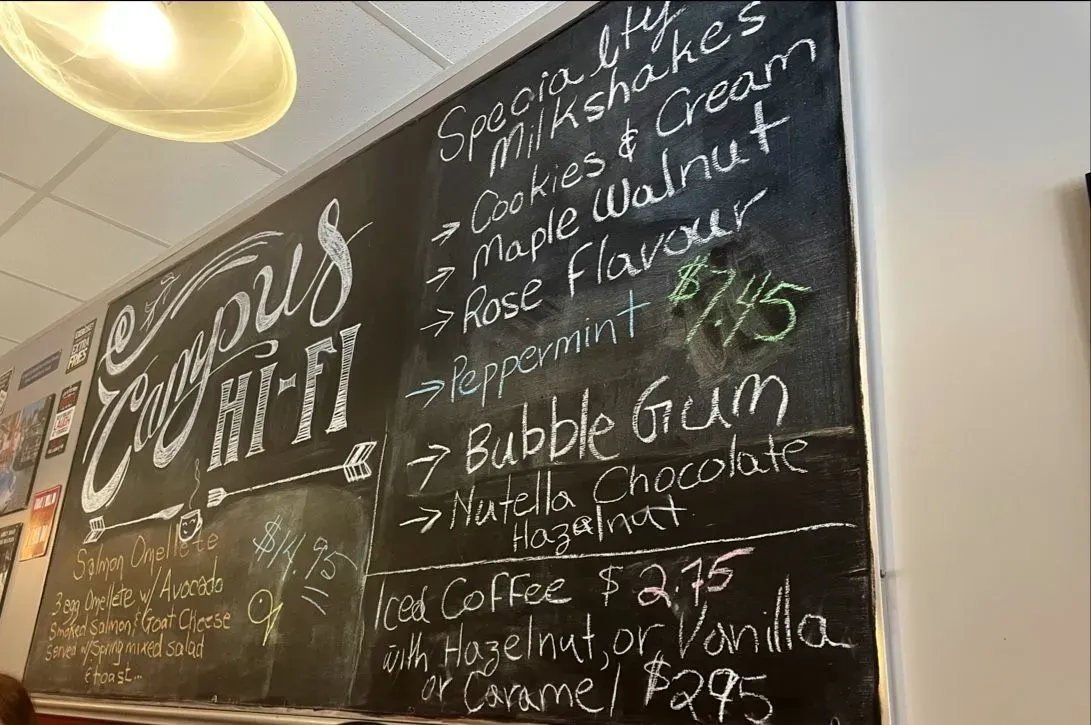 Campus
HI-FI
Salmon Omellete
$14.95
3 egg Omellete w/ Avocado
Smoked Salmon, & Goat Cheese
Served w/ Spring mixed salad
& toast...
Specialty
Milkshakes
→ Cookies & Cream
→ Maple Walnut
→ Rose Flavour
→ Peppermint $7.45
→ Bubble Gum
→ Nutella Chocolate
Hazelnut
Iced Coffee $2.75
with Hazelnut, or Vanilla
or Caramel $2.95